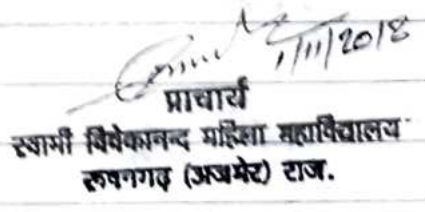 1/11/2018
प्राचार्य
स्वामी विवेकानन्द महिला महाविद्यालय
रूपनगढ़ (अजमेर) राज.